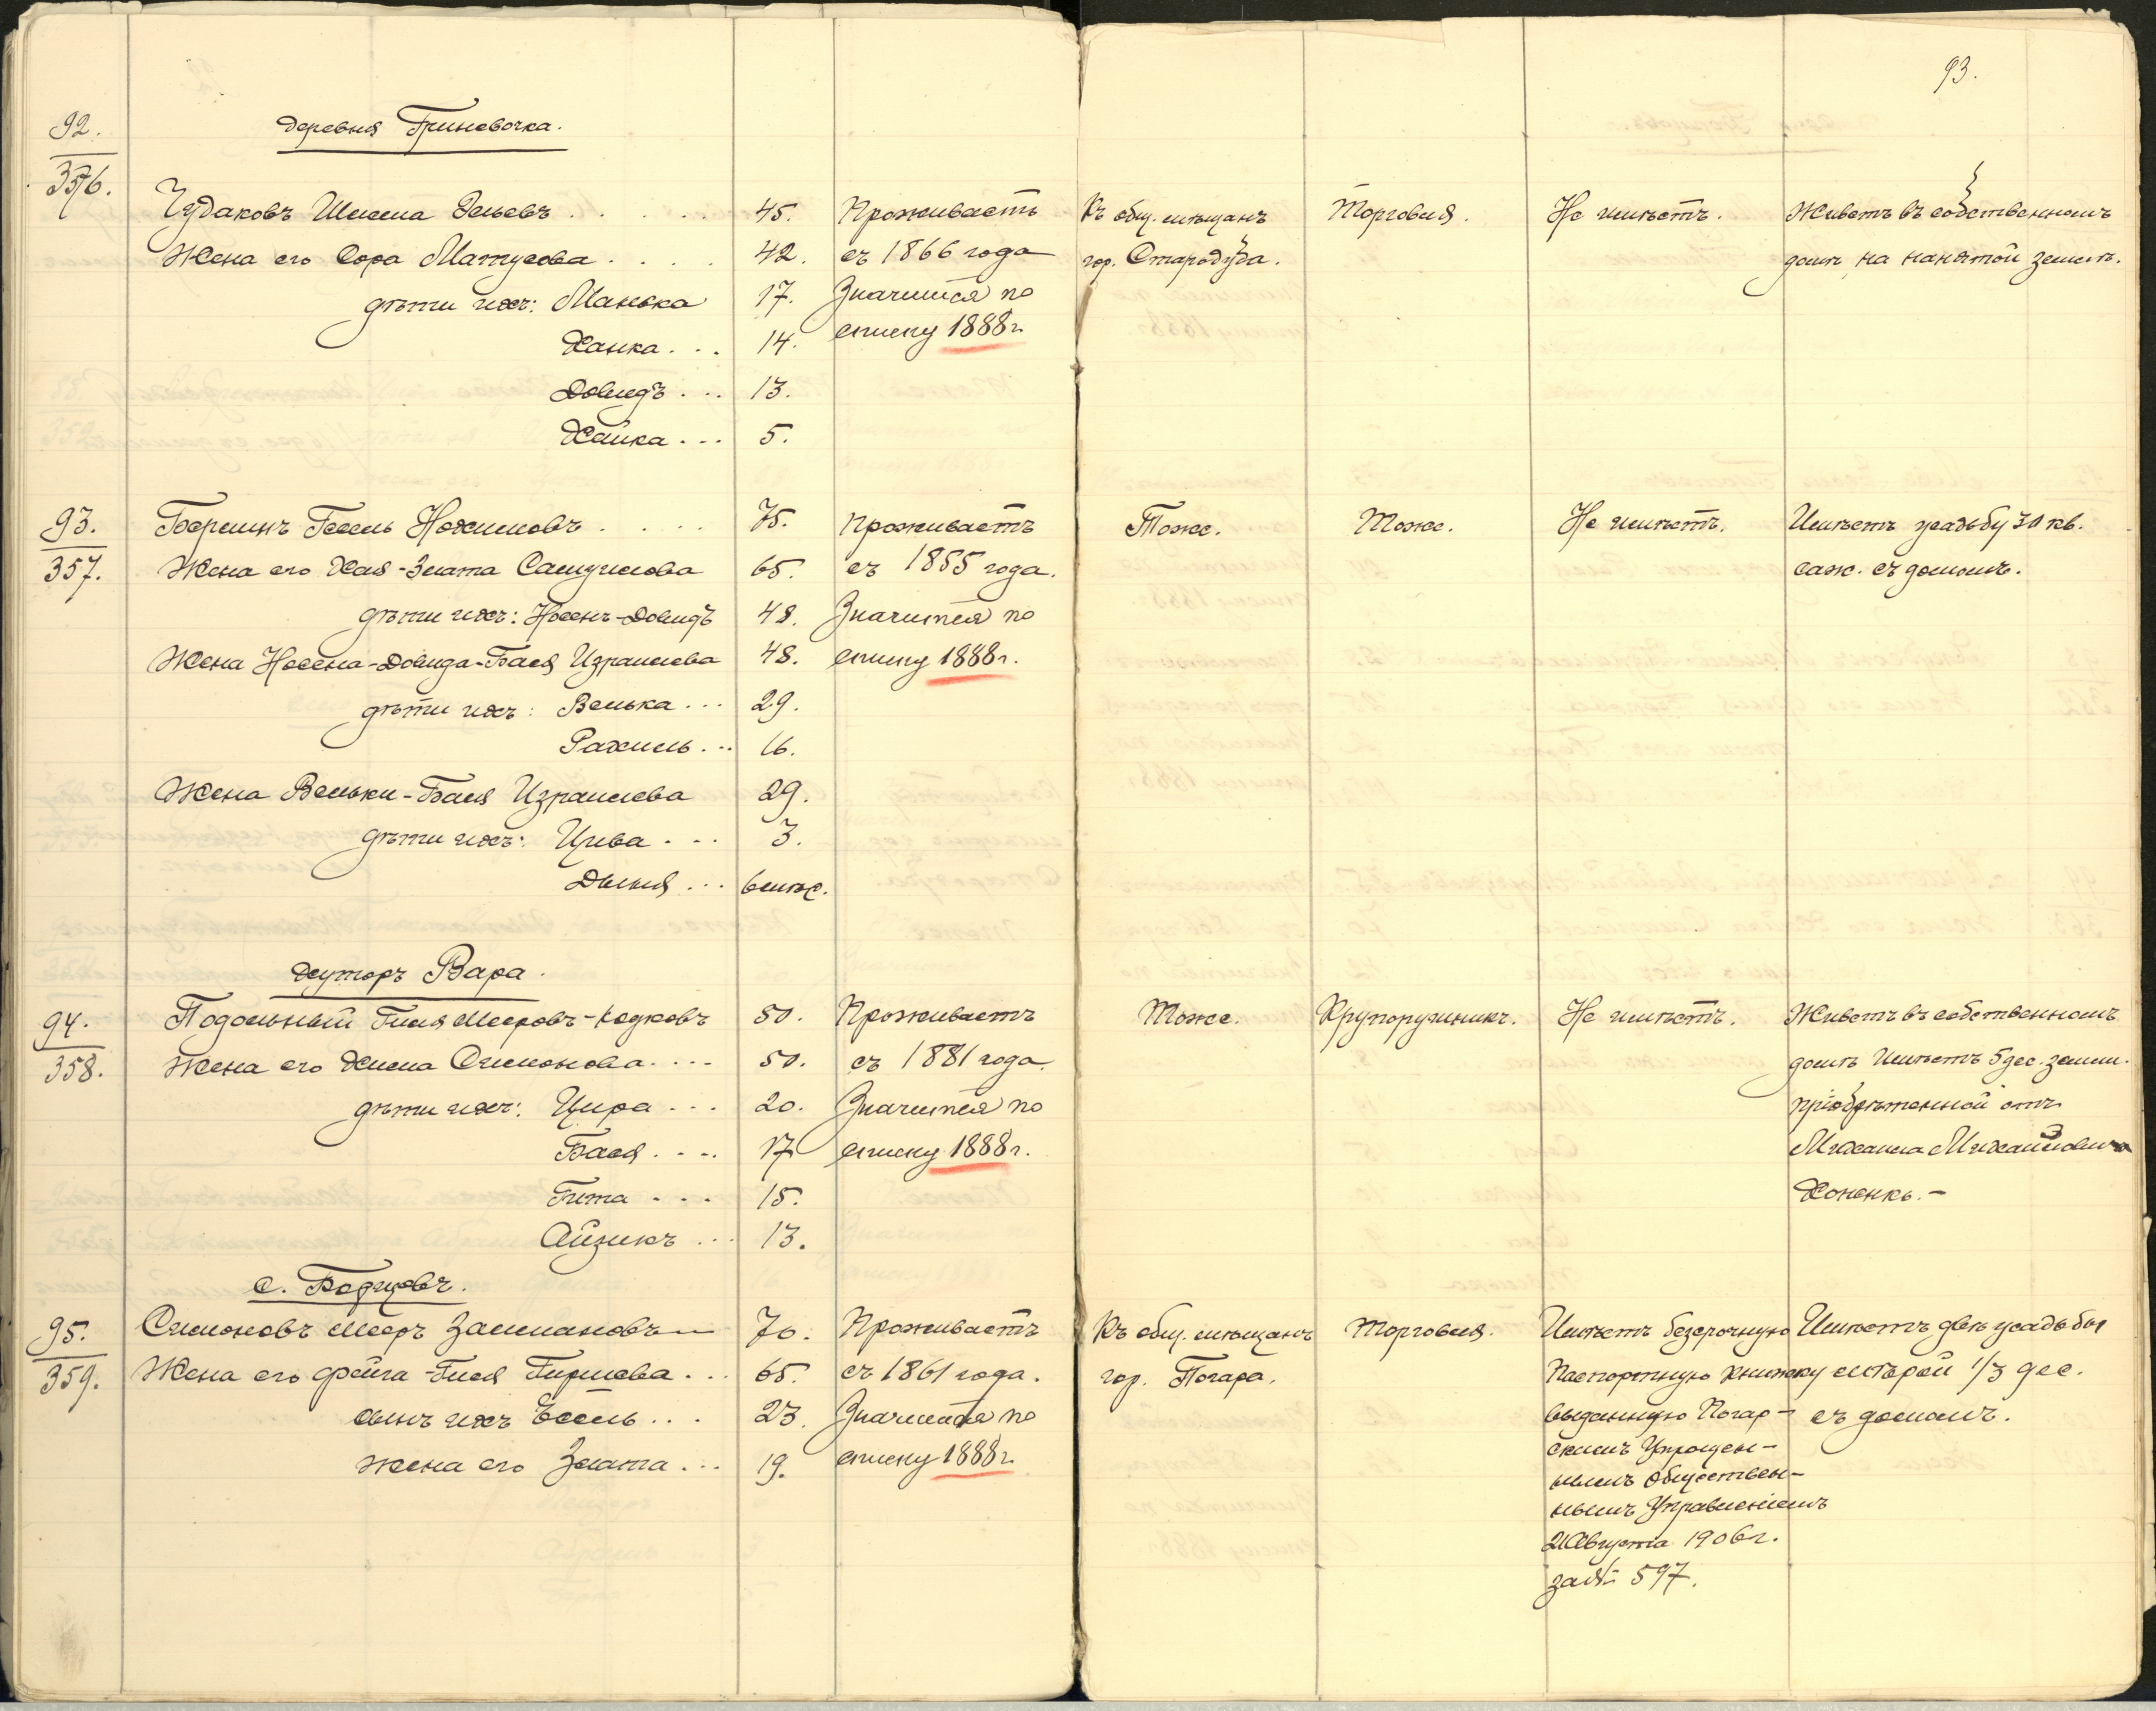 93.
92.
деревня Гриневочка.
356.
Чудаковъ Шлема Зельевъ . . . . . 45. Проживаетъ Къ общ. мѣщанъ Торговля. Не имѣетъ. Живетъ въ собственномъ
Жена его Сора Матусова . . . . 42. съ 1866 года гор. Стародуба. домѣ на нанятой землѣ.
дѣти ихъ: Манька 17. Значится по
Ханка . . . 14. списку 1888 г.
Довидъ . . . 13.
Хайка . . . 5.
93. Берлинъ Гесель Нохимовъ . . . . 75. проживаетъ Тоже. Тоже. Не имѣетъ. Имѣетъ усадьбу 30 кв.
357. Жена его Хая-Злата Самуилова 65. съ 1855 года. саж. съ домомъ.
дѣти ихъ: Носенъ-Довидъ 48. Значится по
Жена Носена-Довида-Бася Израилева 48. списку 1888 г.
дѣти ихъ: Велька . . . 29.
Рахиль . . . 16.
Жена Вельки-Бася Израилева 29.
дѣти ихъ: Цива . . . 3.
Дыня . . . 6 мѣс.
хуторъ Вара.
94. Подольный Гиля Мееровъ- 50. Проживаетъ Тоже. Крупорушникъ. Не имѣетъ. Живетъ въ собственномъ
358. Жена его Симонова . . . . 50. съ 1881 года. домѣ Имѣетъ 5 дес. земли.
дѣти ихъ: Цира . . . 20. Значится по пріобрѣтенной отъ
Бася . . . . 17 списку 1888 г. Михаила Михайловича
Гита . . . 15. Ханенко. -
Айзикъ . . . 13.
с. Борщовъ.
95. Симоновъ Мееръ Залмановъ 70. Проживаетъ Къ общ. мѣщанъ Торговля. Имѣетъ безсрочную Имѣетъ двѣ усадьбы
359. Жена его Фейга-Гися Гиршева . . . 65. съ 1861 года. гор. Погара. Паспортную книжку мѣрой 1/3 дес.
сынъ ихъ Есель . . . 23. Значится по выданную Погар- съ домомъ.
жена его Злата . . . 19. списку 1888 г. скимъ Упрощен-
нымъ Обществен-
нымъ Управленіемъ
21 Августа 1906 г.
за № 597.